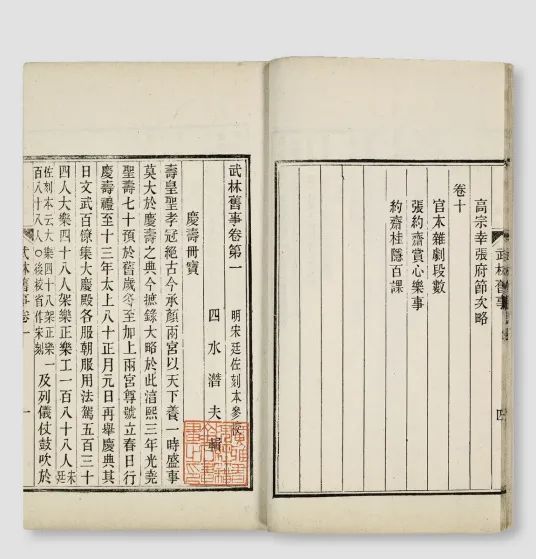 高宗幸張府節次略
卷十
官本雜劇段數
張約齋賞心樂事
約齋桂隱百課
武林舊事
四
武林舊事卷第一
明宋廷佐刻本參校
四水潛夫輯
慶壽冊寶
壽皇聖孝冠絕古今承顏兩宮以天下養一時盛事
莫大於慶壽之典今摭錄大略於此淳熙三年光堯
聖壽七十預於舊歲冬至加上兩宮尊號立春日行
慶壽禮至十三年太上八十正月元日再舉慶典其
日文武百僚集大慶殿各服朝服用法駕五百三十
四人大樂四十八人架樂正樂工一百八十八人朱廷
佐刻本云大樂四十八架樂正樂一
百八十八人〇後校省作宋刻及列儀仗鼓吹於
武林舊事卷一
一